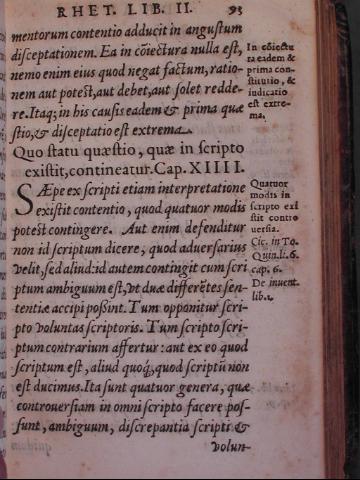 RHET. LIB. II. 93
mentorum contentio adducit in angustum
disceptationem. Ea in cõiectura nulla est,
nemo enim eius quod negat factum, ratio-
nem aut potest, aut debet, aut solet redde-
re. Itaq; in his causis eadem & prima quæ
stio, & disceptatio est extrema.
In cõiectu
ra eadem &
prima con-
stitutio, &
iudicatio
est extre-
ma.
Quo statu quæstio, quæ in scripto
existit, contineatur. Cap. XIIII.
SÆpe ex scripti etiam interpretatione
existit contentio, quod quatuor modis
potest contingere. Aut enim defenditur
non id scriptum dicere, quod aduersarius
velit, sed aliud: id autem contingit cum scri
ptum ambiguum est, vt duæ differẽtes sen-
tentiæ accipi possint. Tum opponitur scri-
pto voluntas scriptoris. Tum scripto scri-
ptum contrarium affertur: aut ex eo quod
scriptum est, aliud quoq; quod scriptũ non
est ducimus. Ita sunt quatuor genera, quæ
controuersiam in omni scripto facere pos-
sunt, ambiguum, discrepantia scripti &
volun-
Quatuor
modis in
scripto exi
stit contro
uersia.
Cic. in To.
Quin. li. 6.
cap. 6.
De inuent.
lib. 1.